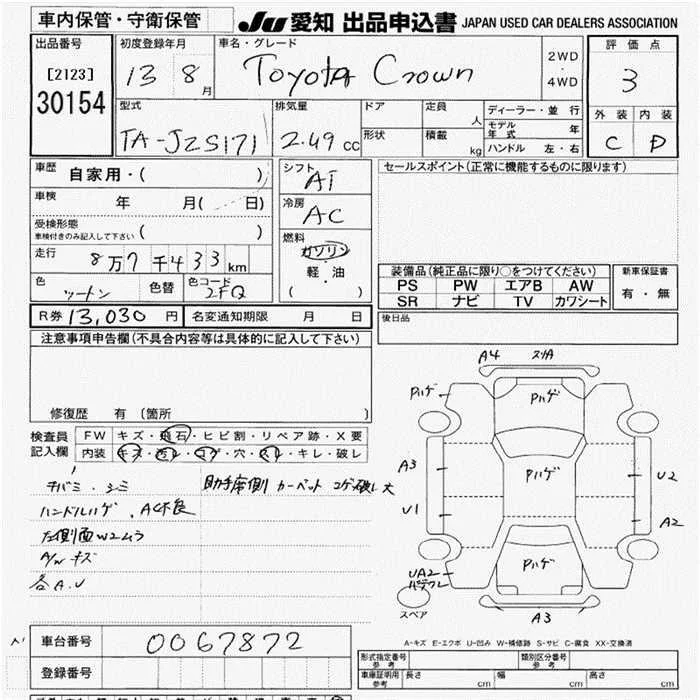 車内保管・守衛保管
JU 愛知 出品申込書 JAPAN USED CAR DEALERS ASSOCIATION
出品番号
[2123]
30154
初度登録年月
13 8 月
車名・グレード
Toyota Crown
2WD
・
4WD
評価点
3
外装 内装
C D
型式
TA-JZS171
排気量
2.49 cc
ドア
形状
定員
人
積載
kg
ディーラー・並行
モデル年式 年
ハンドル 左・右
車歴
自家用・( )
車検
年 月( 日)
受検形態
車検付きのみ記入して下さい ( )
走行
8万7千433km
色
ツートン
色替
色コード
2FQ
シフト
AT
冷房
AC
燃料
ガソリン
軽・油
( )
セールスポイント(正常に機能するものに限ります)
装備品(純正品に限り○をつけてください)
PS PW エアB AW
SR ナビ TV カワシート
新車保証書
有・無
R券 13,030 円
名変通知期限 月 日
後日品
注意事項申告欄(不具合内容等は具体的に記入して下さい)
修復歴 有 〔箇所 〕
検査員
記入欄
FW キズ・飛石・ヒビ割・リペア跡・X要
内装 キズ・汚レ・コゲ・穴・スレ・キレ・破レ
チバミ・シミ
助手席側 カーペット コゲ破レ大
ハンドルハゲ、AC不良
左側面W2ムラ
A/Wキズ
各A.U
A4 スリA
Pハゲ
Pハゲ
A3
Pハゲ
U2
U1
A2
Pハゲ
UA2
スペア
A3
A-キズ E-エクボ U-凹み W-補修跡 S-サビ C-腐食 XX-交換済
車台番号
0067872
登録番号
形式指定番号
参考
類別区分番号
参考
車庫証明用
参考
長さ cm
幅 cm
高さ cm